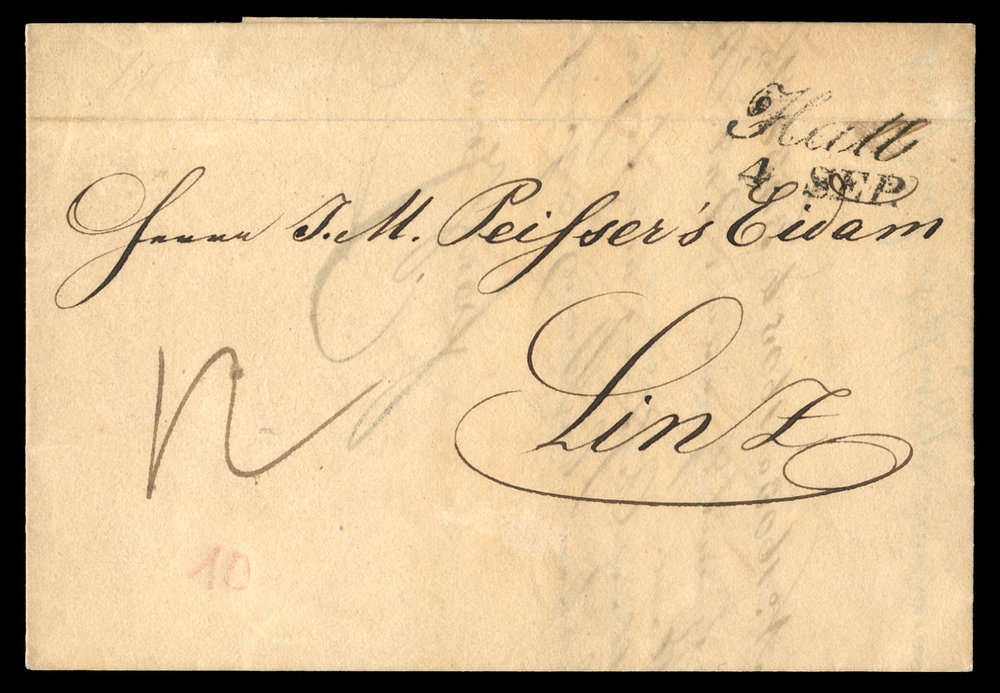 Hall
4 SEP.
Herrn J. M. Peisser's Eidam
Linz
10